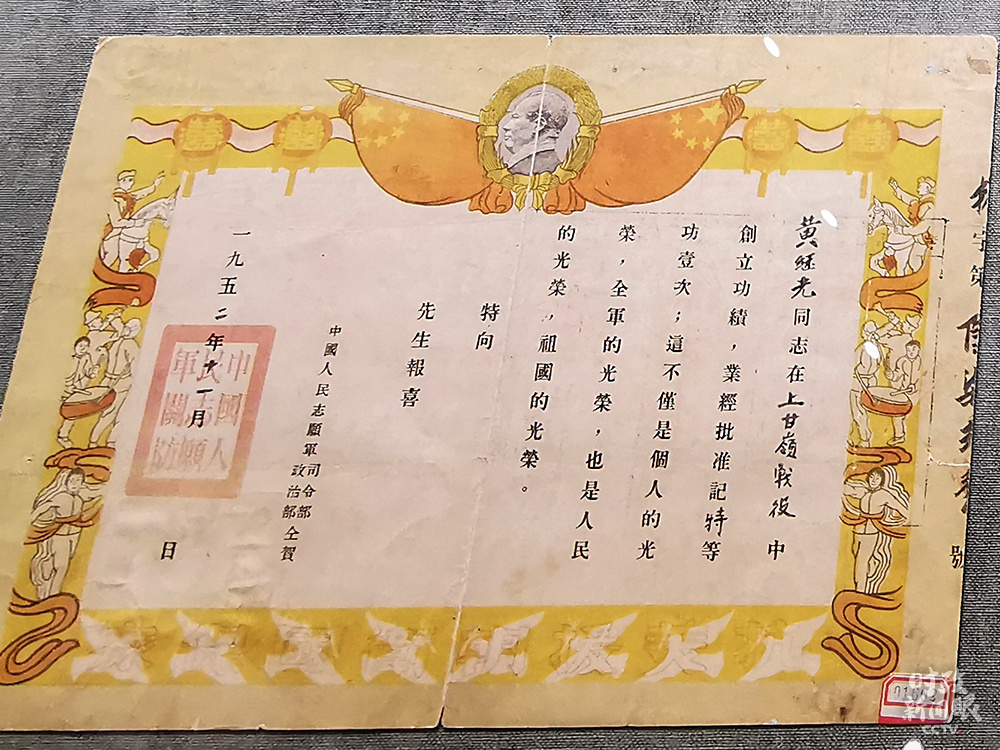 字第
號
黄继光同志在上甘嶺戰役中
創立功績，業經批准記特等
功壹次；這不僅是個人的光
榮，全軍的光榮，也是人民
的光榮，祖國的光榮。
特向
先生報喜
中國人民志願軍司令部
政治部仝賀
一九五二年十一月 日
中國人民志願軍關防
时政
新闻眼
CCTV